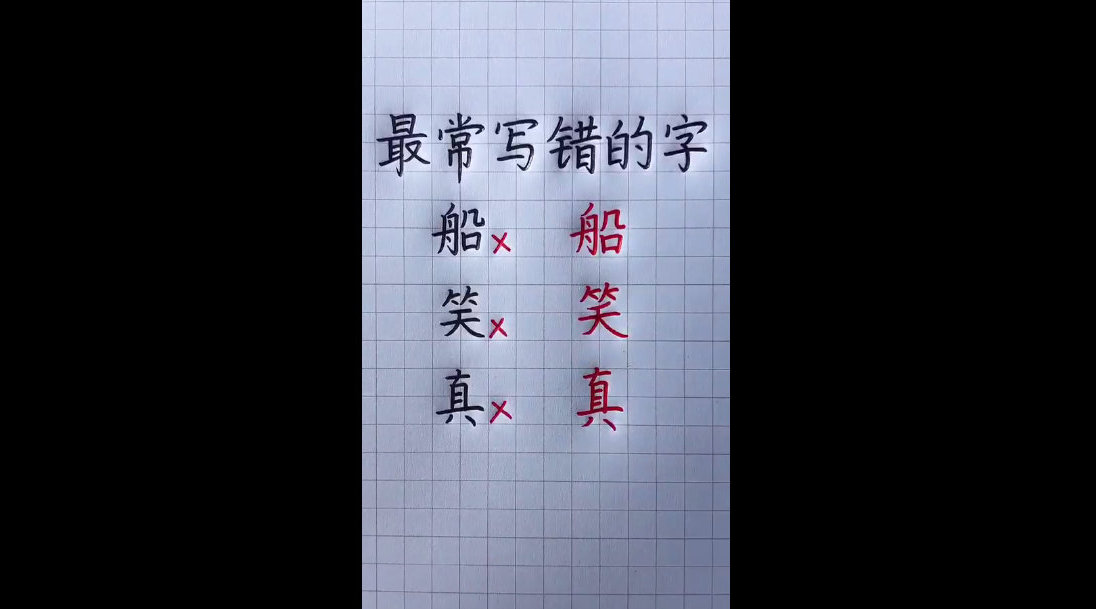 最常写错的字
船× 船
笑× 笑
真× 真